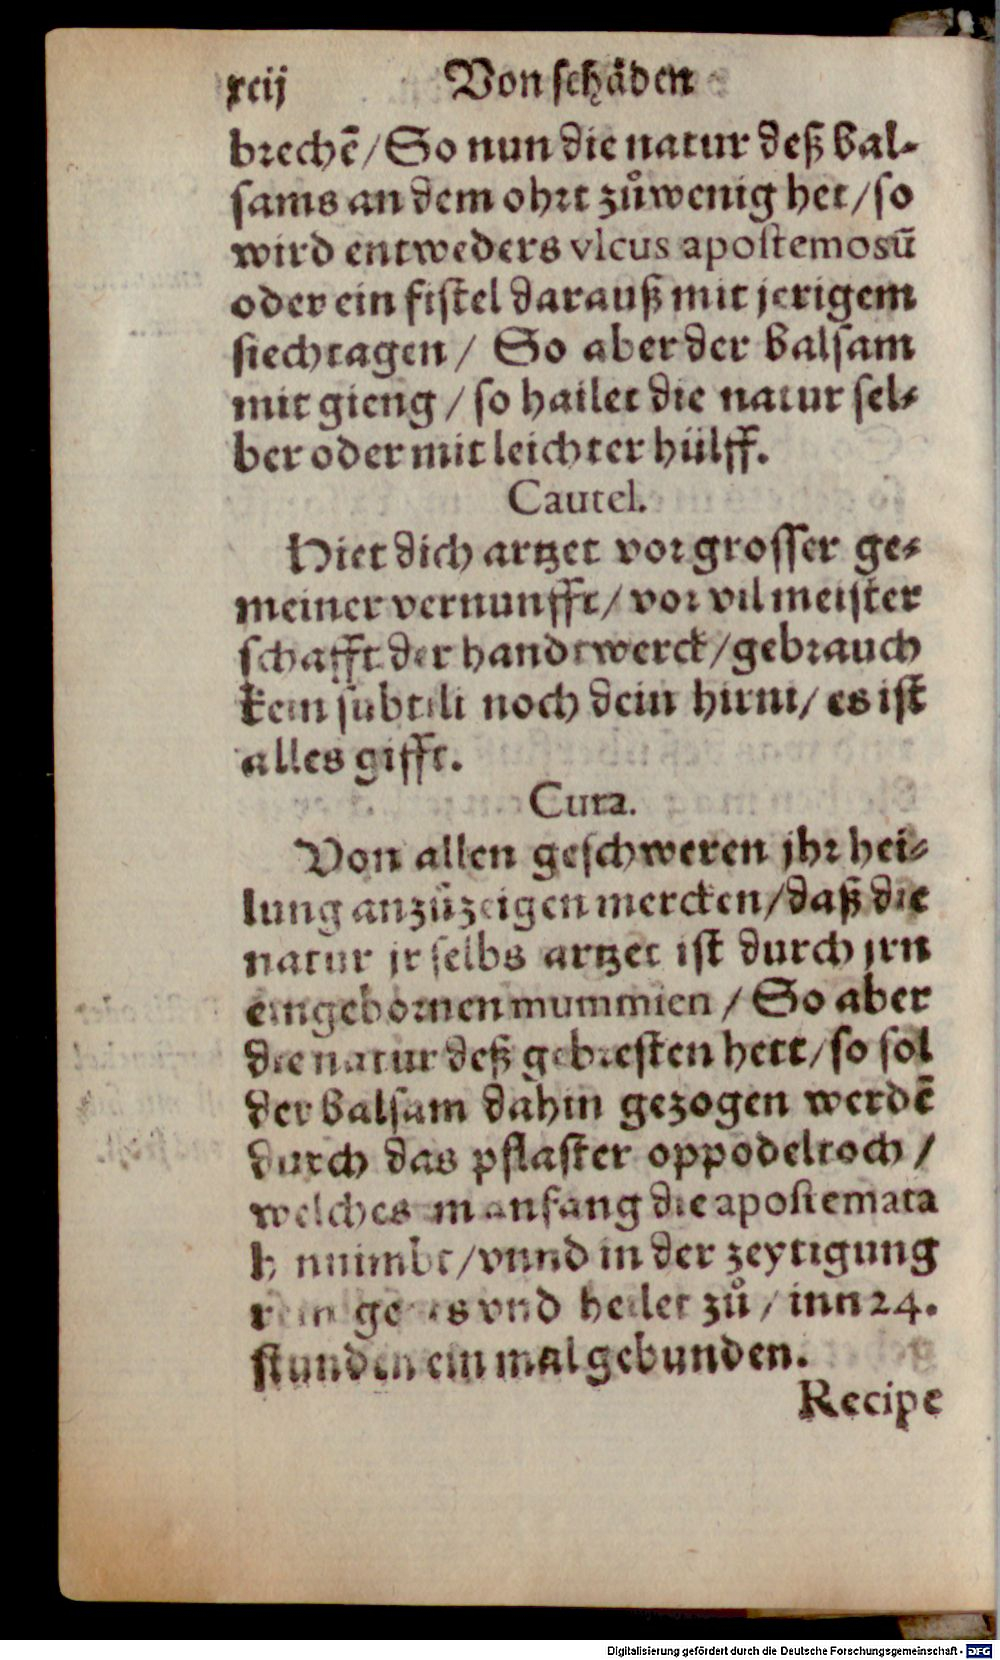 xcij Von schäden
brechē/So nun die natur deß bal-
sams an dem ohrt zůwenig het/so
wird entweders vlcus apostemosū
oder ein fistel darauß mit jerigem
siechtagen/ So aber der balsam
mit gieng/so hailet die natur sel-
ber oder mit leichter hülff.
Cautel.
Hiet dich artzet vor grosser ge-
meiner vernunfft/vor vil meister
schafft der handtwerck/gebrauch
kein subtili noch dein hirni/es ist
alles gifft.
Cura.
Von allen geschweren jhr hei-
lung anzůzeigen mercken/daß die
natur jr selbs artzet ist durch jrn
eingebornen mummien/So aber
die natur deß gebresten hett/so sol
der balsam dahin gezogen werdē
durch das pflaster oppodeltoch/
welches im anfang die apostemata
hinnimbt/vnnd in der zeytigung
vnd heilet zů/inn 24.
stunden ein mal gebunden.
Recipe
Digitalisierung gefördert durch die Deutsche Forschungsgemeinschaft - DFG